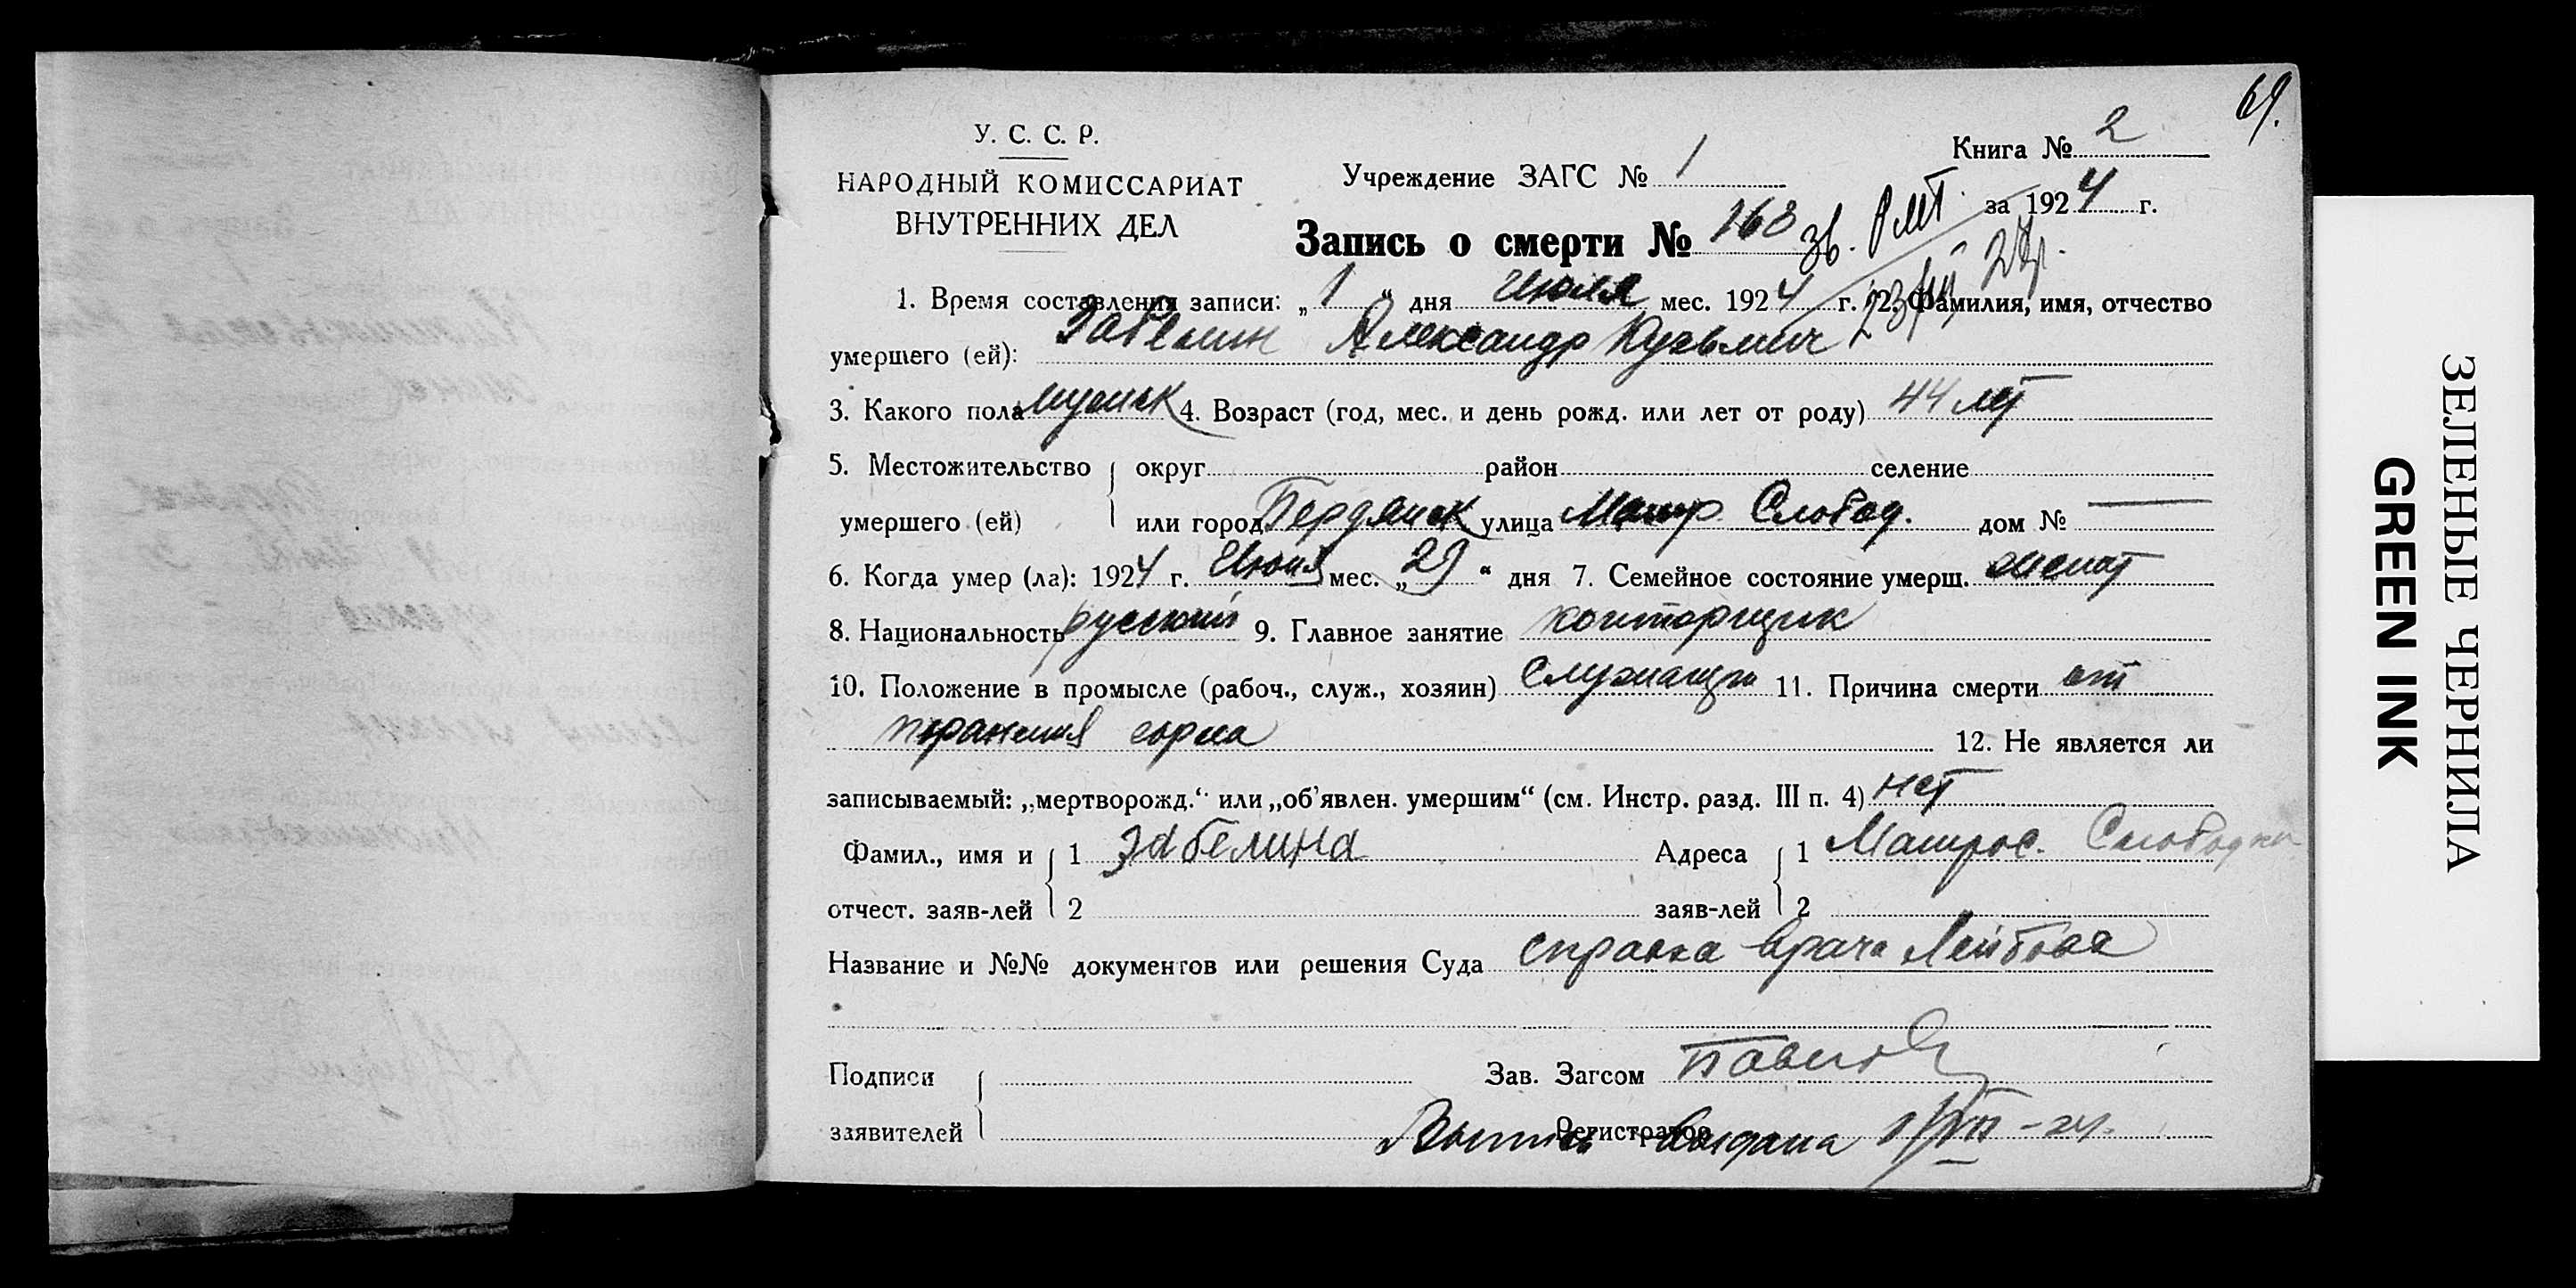 69.
У. С. С. Р.
НАРОДНЫЙ КОМИССАРИАТ
ВНУТРЕННИХ ДЕЛ
Учреждение ЗАГС № 1
Книга № 2
за 1924 г.
Запись о смерти № 168
1. Время составления записи: „1“ дня Июля мес. 1924 г. 2. Фамилия, имя, отчество
умершего (ей): Забелин Александр Кузьмич
3. Какого пола мужск 4. Возраст (год, мес. и день рожд. или лет от роду) 44 лет
5. Местожительство округ район селение
умершего (ей) или город Бердянск улица Матр. Слобод. дом № —
6. Когда умер (ла): 1924 г. Июня мес. „29“ дня 7. Семейное состояние умерш. женат
8. Национальность русский 9. Главное занятие конторщик
10. Положение в промысле (рабоч., служ., хозяин) Служащи 11. Причина смерти от
горла 12. Не является ли
записываемый: „мертворожд.“ или „об'явлен. умершим“ (см. Инстр. разд. III п. 4) нет
Фамил., имя и 1 Забелина Адреса 1 Матрос. Слободки
отчест. заяв-лей 2 заяв-лей 2
Название и №№ документов или решения Суда справка врача
Подписи Зав. Загсом
заявителей Регистратор
Выпись выдана 1/VII-24.
ЗЕЛЕНЫЕ ЧЕРНИЛА
GREEN INK